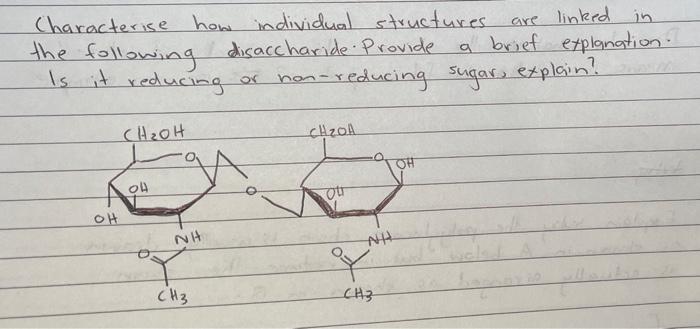 Characterise how individual structures are linked in
the following disaccharide. Provide a brief explanation.
Is it reducing or non-reducing sugar, explain?
CH2OH CH2OH
O O OH
OH O OH
OH
NH NH
O O
CH3 CH3